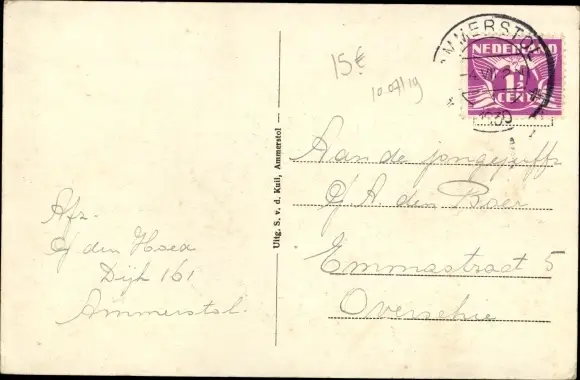 15€
10.07119
AMMERSTOL
NEDERLAND
1½
CENT
Afz.
den Hoed
Dijk 161
Ammerstol.
Uitg. S. v. d. Kuil, Ammerstol
Aan de jongejuffr.
A. den Boer
Emmastraat 5
Overschie